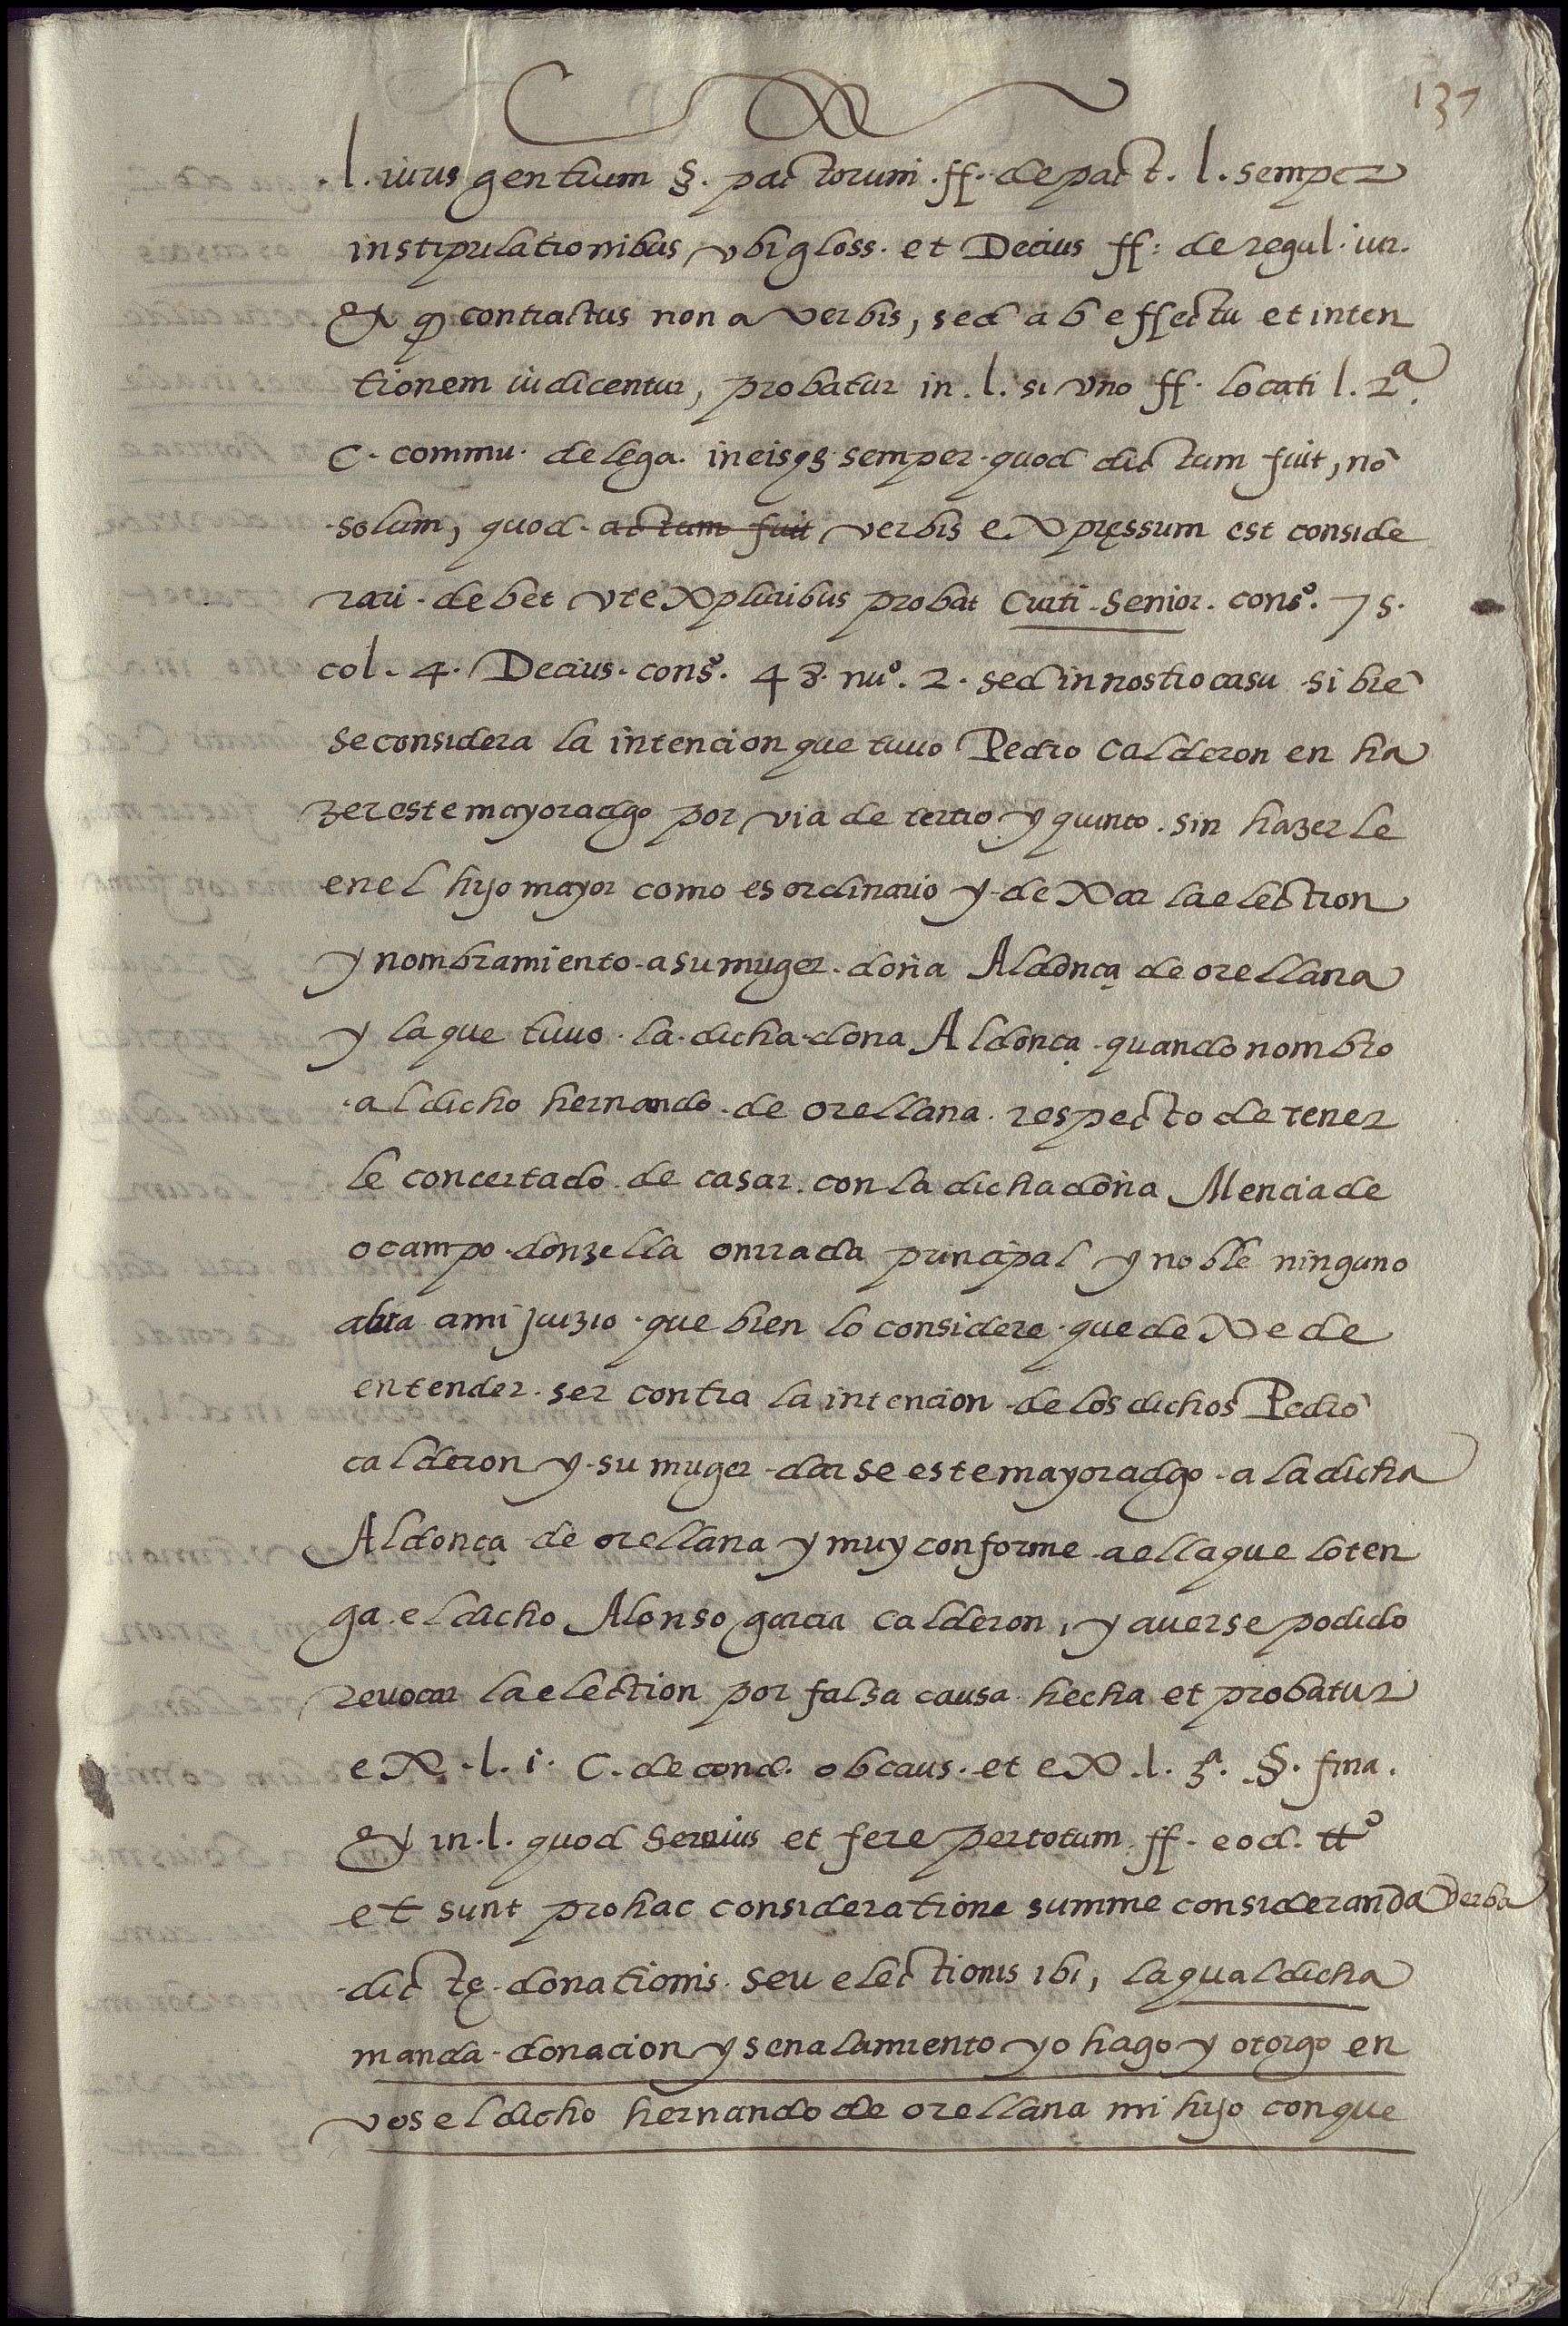 137
.l. iurus gentium §. pactorum .ff. de pact. l. semper
in stipulationibus, ubi gloss. et Decius ff: de regul. iur.
& q̨ contractus non a verbis, sed ab effectu et inten
tionem iudicentur, probatur in. l. si vno ff. locati l. 2ª.
C. commu. de lega. in eisqȝ semper. quod dictum fuit, nō
solum, quod. actum fuit verbis expręssum est conside
rari. debet vt ex pluribus probat Curti. Senior. consº. 75.
col. 4. Decius. consº. 48. nuº. 2. sed in nostro casu si biē
se considera la intencion que tuuo Pedro Calderon en ha
zer este mayoradgo por via de tertio y quinto. sin hazerle
en el hijo mayor como es ordinario y dexar la election
y nombramiento. a su muger. doña Aldonça de orellana
y la que tuuo. la. dicha. dona Aldonça. quando nombro
al dicho hernando. de orellana. respecto de tener
le concertado. de casar. con la dicha doña Mencia de
ocampo. donzella onrrada principal y noble ninguno
abra a mi juizio. que bien lo considere. que dexe de
entender. ser contra la intencion de los dichos Pedro
calderon y su muger. darse este mayoradgo. a la dicha
Aldonça de orellana y muy conforme a ella que lo ten
ga. el dicho Alonso garcia calderon, y auerse podido
reuocar la election por falsa causa hecha et probatur
ex .l. i. C. de cond. ob caus. et ex .l. 3ª. §. fina.
& in. l. quod Seruius et fere per totum. ff. eod. ttº
et sunt pro hac consideratione summe consideranda verba
dictę donationis. seu electionis ibi, la qual dicha
manda donacion y senalamiento yo hago y otorgo en
vos el dicho hernando de orellana mi hijo con que